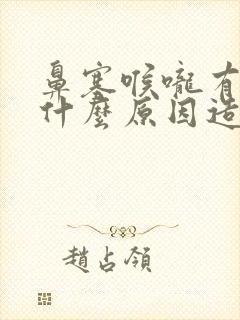 鼻塞喉嚨有
什麼原因造
趙占領